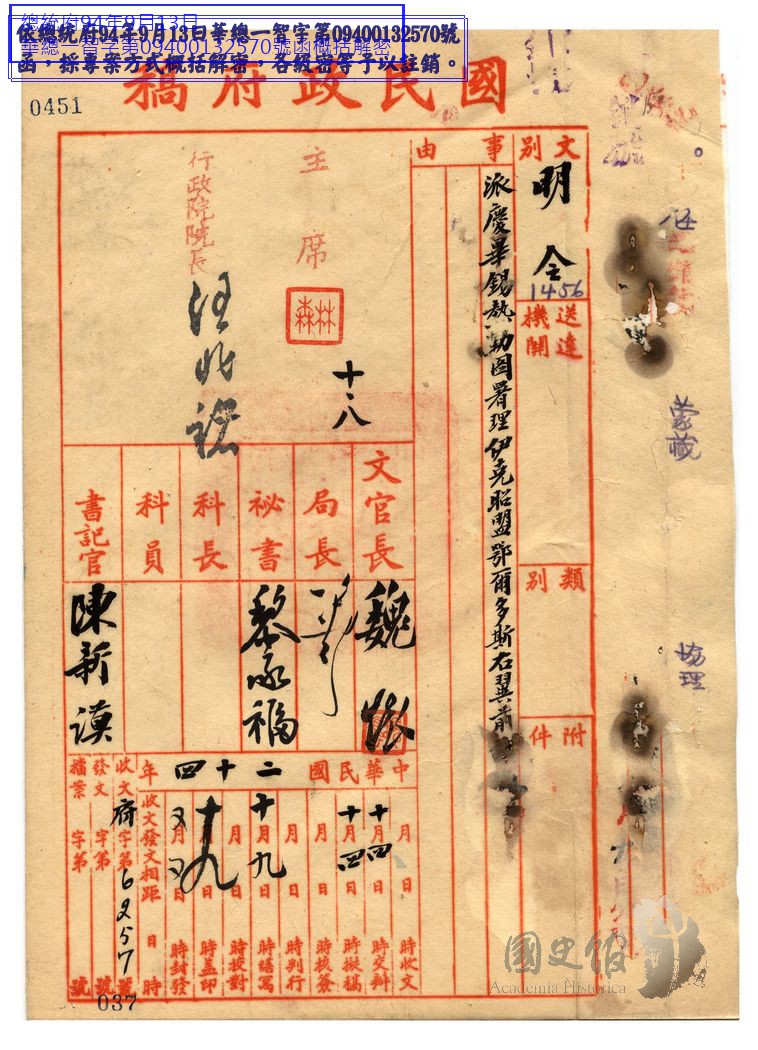 總統府94年9月13日
華總一智字第09400132570號函概括解密
依總統府94年9月13日華總一智字第09400132570號
函，採專案方式概括解密，各級密等予以註銷。
0451
國民政府稿
文別
明令
1456
送達機關
類別
附件
事由
派慶畢錫熱勒圖署理伊克昭盟鄂爾多斯右翼前
主席
林森
十、八
行政院院長
汪兆銘
文官長
魏懷
局長
祕書
黎承福
科長
科員
書記官
陳新謨
中華民國二十四年
月 日 時收文
十月十四日 時交辦
十月十四日 時擬稿
月 日 時核簽
月 日 時判行
十月九日 時繕寫
月 日 時校對
十月九日 時蓋印
月 日 時封發
收文發文相距 日 時
收文府字第6257號
發文 字第 號
檔案 字第 號
037
蒙藏
協理
國史館
Academia Historica